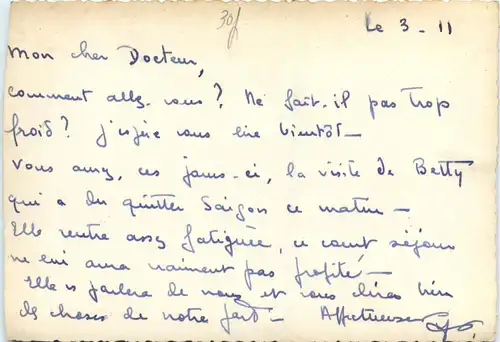 30f
Le 3 - 11
Mon cher Docteur,
comment allez-vous? Ne fait-il pas trop
froid? J'espère vous lire bientôt -
Vous aurez, ces jours-ci, la visite de Betty
qui a du quitter Saigon ce matin -
Elle rentre assez fatiguée, ce court séjour
ne lui aura vraiment pas profité -
Elle vs parlera de nous et vous dira bien
des choses de notre part - Affectueuse